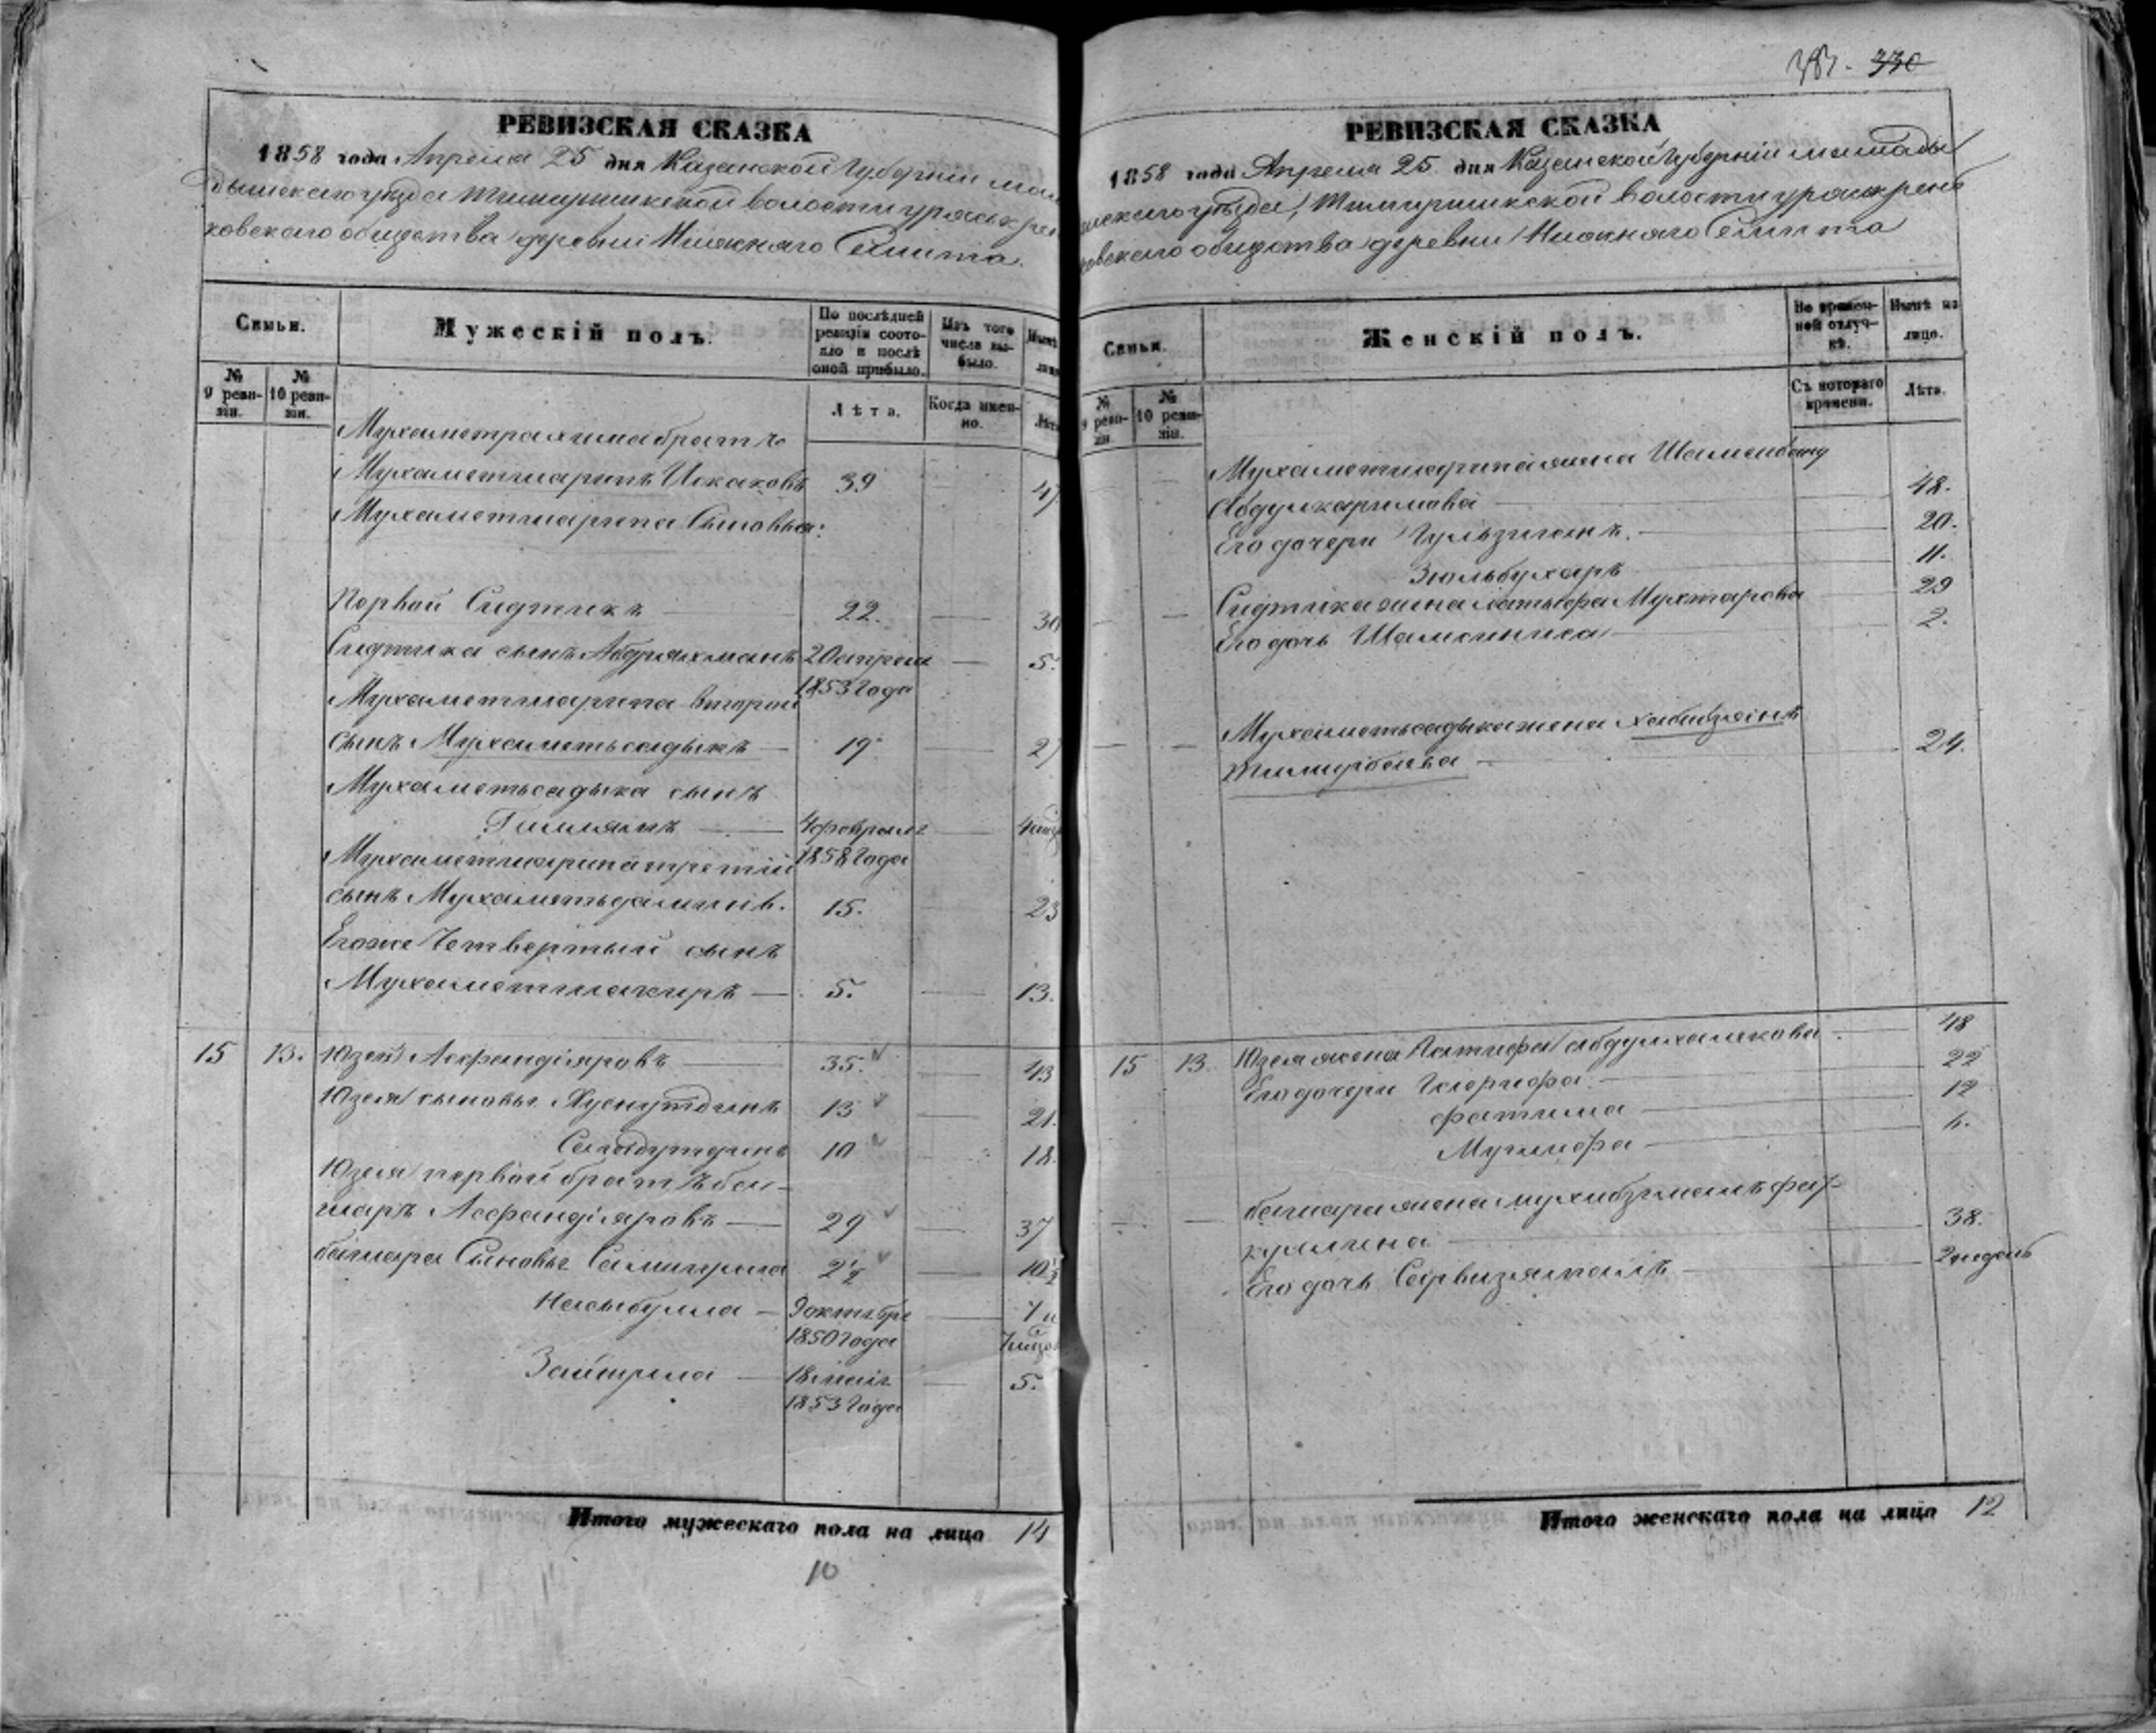 330
РЕВИЗСКАЯ СКАЗКА
1858 года Апреля 25 дня Казанской Губернии мама
дышскаго уезда Тимиришкской волости ураськре
ковскаго общества деревни Нижняго
Семьи.
Мужескій полъ.
По послѣдней
ревизіи состо-
яло и послѣ
оной прибыло.
Изъ того
числа вы-
было.
Нынѣ
лицо
№
9 реви-
зіи.
№
10 реви-
зіи.
Лѣта.
Когда имен-
но.
Лѣта
Мухаметрахима братъ
Мухаметшарипъ Искаковъ 39 47
Мухаметшарипа Сыновья:
Первой Сидтикъ 22. 30
Сидтика сынъ Абдряхманъ 20 апреля 5.
1853 Года
Мухаметшарипа второй
сынъ Мухаметьсадыкъ 19 27
Мухаметьсадыка сынъ
4 февраля
1858 Года
Мухаметшарипа третій
сынъ Мухаметь 15. 23
Егоже Четвертый сынъ
Мухаметшакиръ 5. 13.
15 13. Юзей Асфандіяровъ 35. 43
Юзея сыновья Хуснутдинъ 13 21.
10 18.
Юзея первой братъ Ба-
шаръ Асфандіяровъ 29 37
Башара Сыновья 2½ 10½
Насыбулла 9 октября 7 и
1850 Года 7 мцов
18 мая 5.
1853 Года
Итого мужескаго пола на лицо 14
10
РЕВИЗСКАЯ СКАЗКА
1858 года Апреля 25 дня Казанской Губерніи мамады
шскаго уезда, Тимиришкской волости ураскрень
ковскаго общества деревни Нижняго
Семьи.
Женскій полъ.
Во времен-
ной отлуч-
кѣ.
Нынѣ на
лицо.
№
9 реви-
зіи.
№
10 реви-
зіи.
Съ котораго
времени.
Лѣта.
Мухаметшарипа жена
Абдулкаримова 48.
Его дочери 20.
Зюльбухаръ 11.
Сидтика жена Латыфа Мухтарова 29
Его дочь 2.
Мухаметьсадыка жена Хабибзянъ
24.
15 13 Юзея жена Латифа Абдулхаликова 48
Его дочери 22
Фатима 12
Муглифа
Башара жена
38.
Его дочь 2 недель
Итого женскаго пола на лицо 12